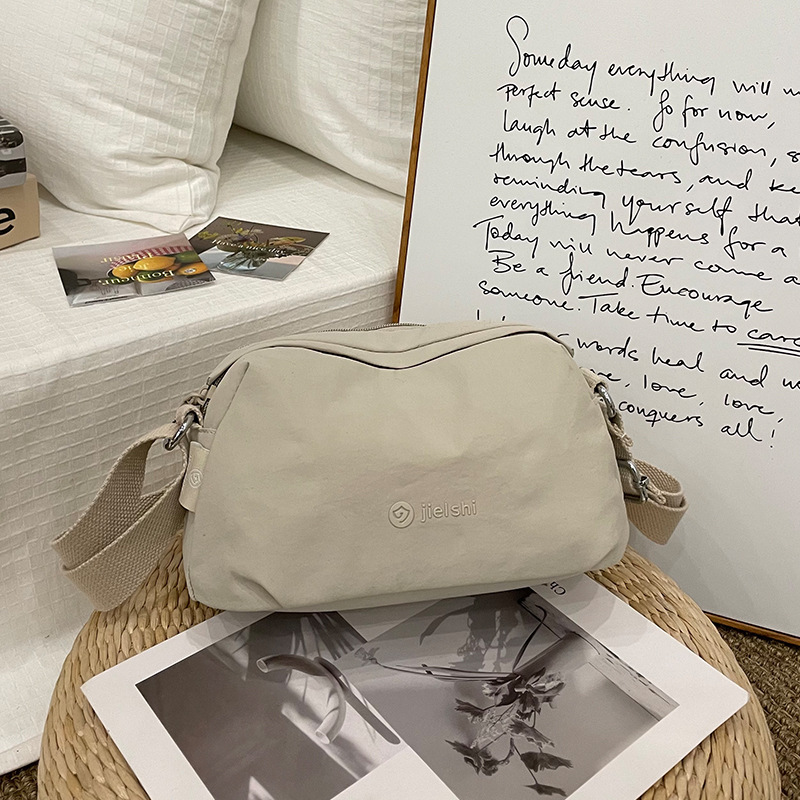 Someday everything will
perfect sense. So for now,
laugh at the confusion,
through the tears, and
reminding yourself that
everything happens for a
Today will never come a
Be a friend. Encourage
someone. Take time to care
words heal and
love, love,
conquers all!
Bonheur,
Plaisir
jielshi
e